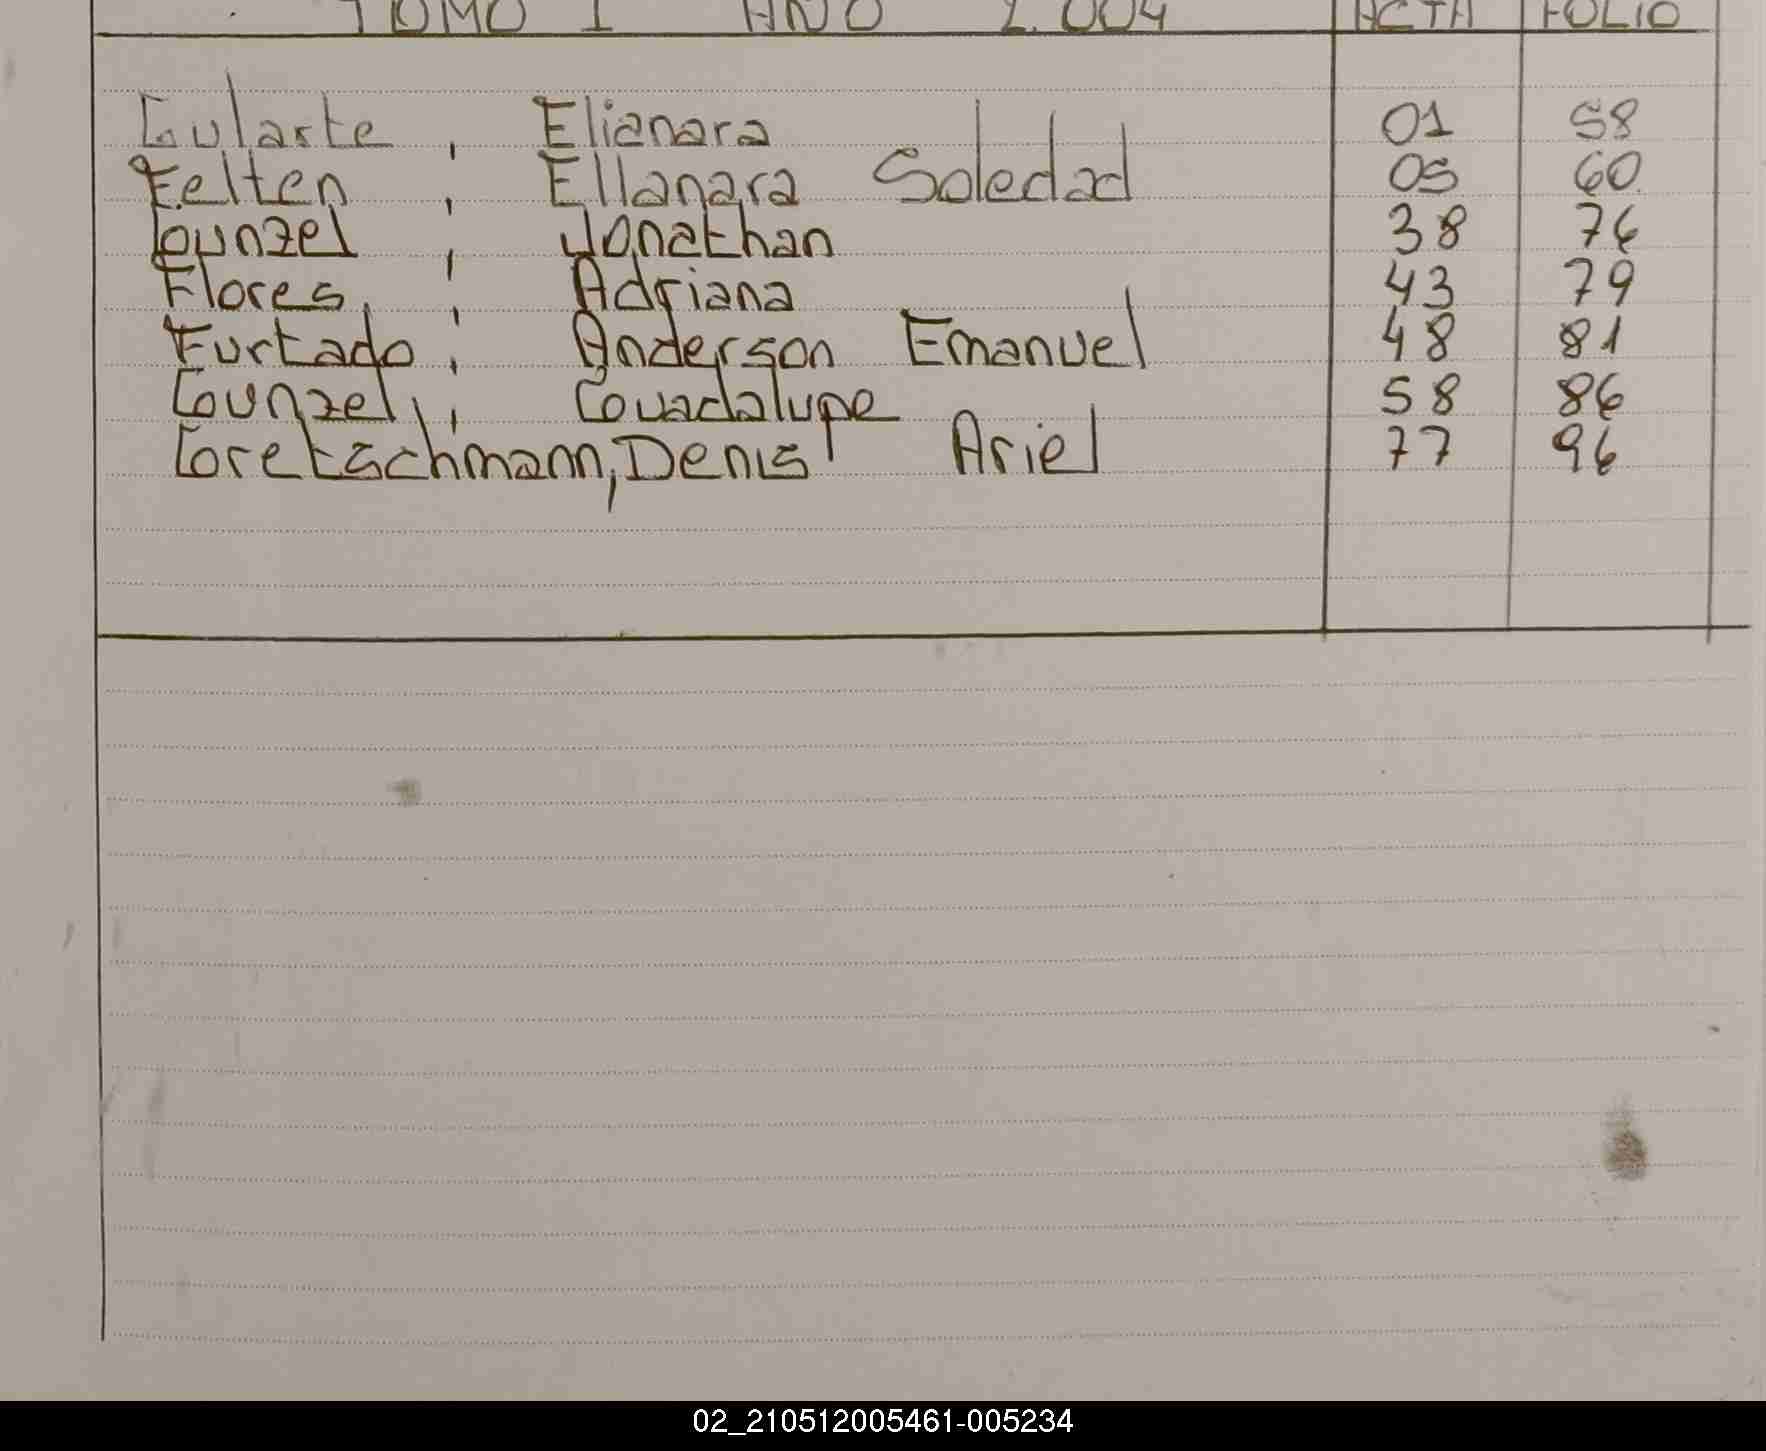 TOMO 1 AÑO 2.004 ACTA FOLIO
Gularte, Elianara 01 58
Felten, Elianara Soledad 05 60
Gunzel, Jonathan 38 76
Flores, Adriana 43 79
Furtado, Anderson Emanuel 48 81
Gunzel, Guadalupe 58 86
Gretschmann, Denis Ariel 77 96
02_210512005461-005234